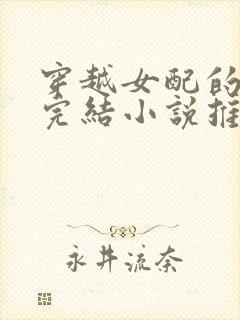 穿越女配的
完結小說推
永井流奈